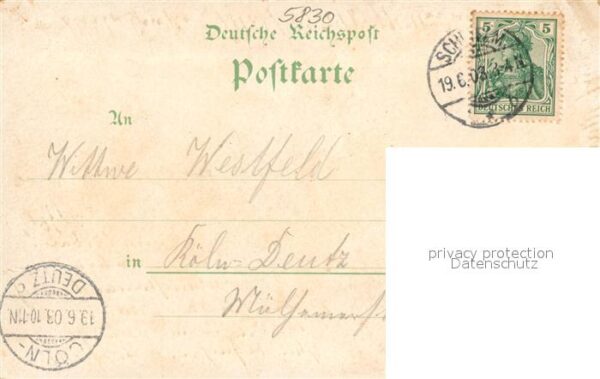 5830
Deutsche Reichspost
Postkarte
5 5
DEUTSCHES REICH
19.6.03. 3-4N
An
Wittwe Westfeld
in Köln-Deutz
privacy protection
Datenschutz
CÖLN-
19.6.03.10-11N
DEUTZ